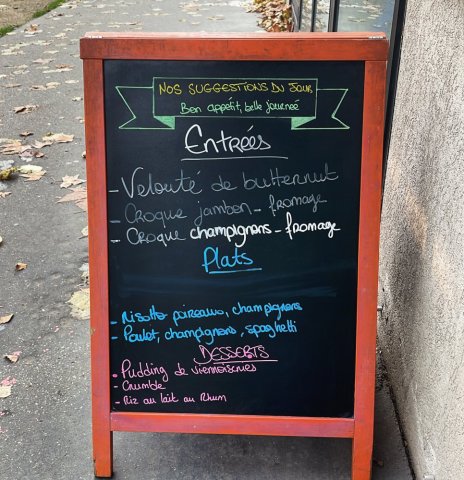 NOS SUGGESTIONS DU JOUR
Bon appétit, belle journeé
Entreés
- Velouté de butternut
- Croque jambon - fromage
- Croque champignons - fromage
Plats
- Risotto poireaux, champignons
- Poulet, champignons, spaghetti
DESSERTS
- Pudding de viennoiseries
- Crumble
- Riz au lait au Rhum